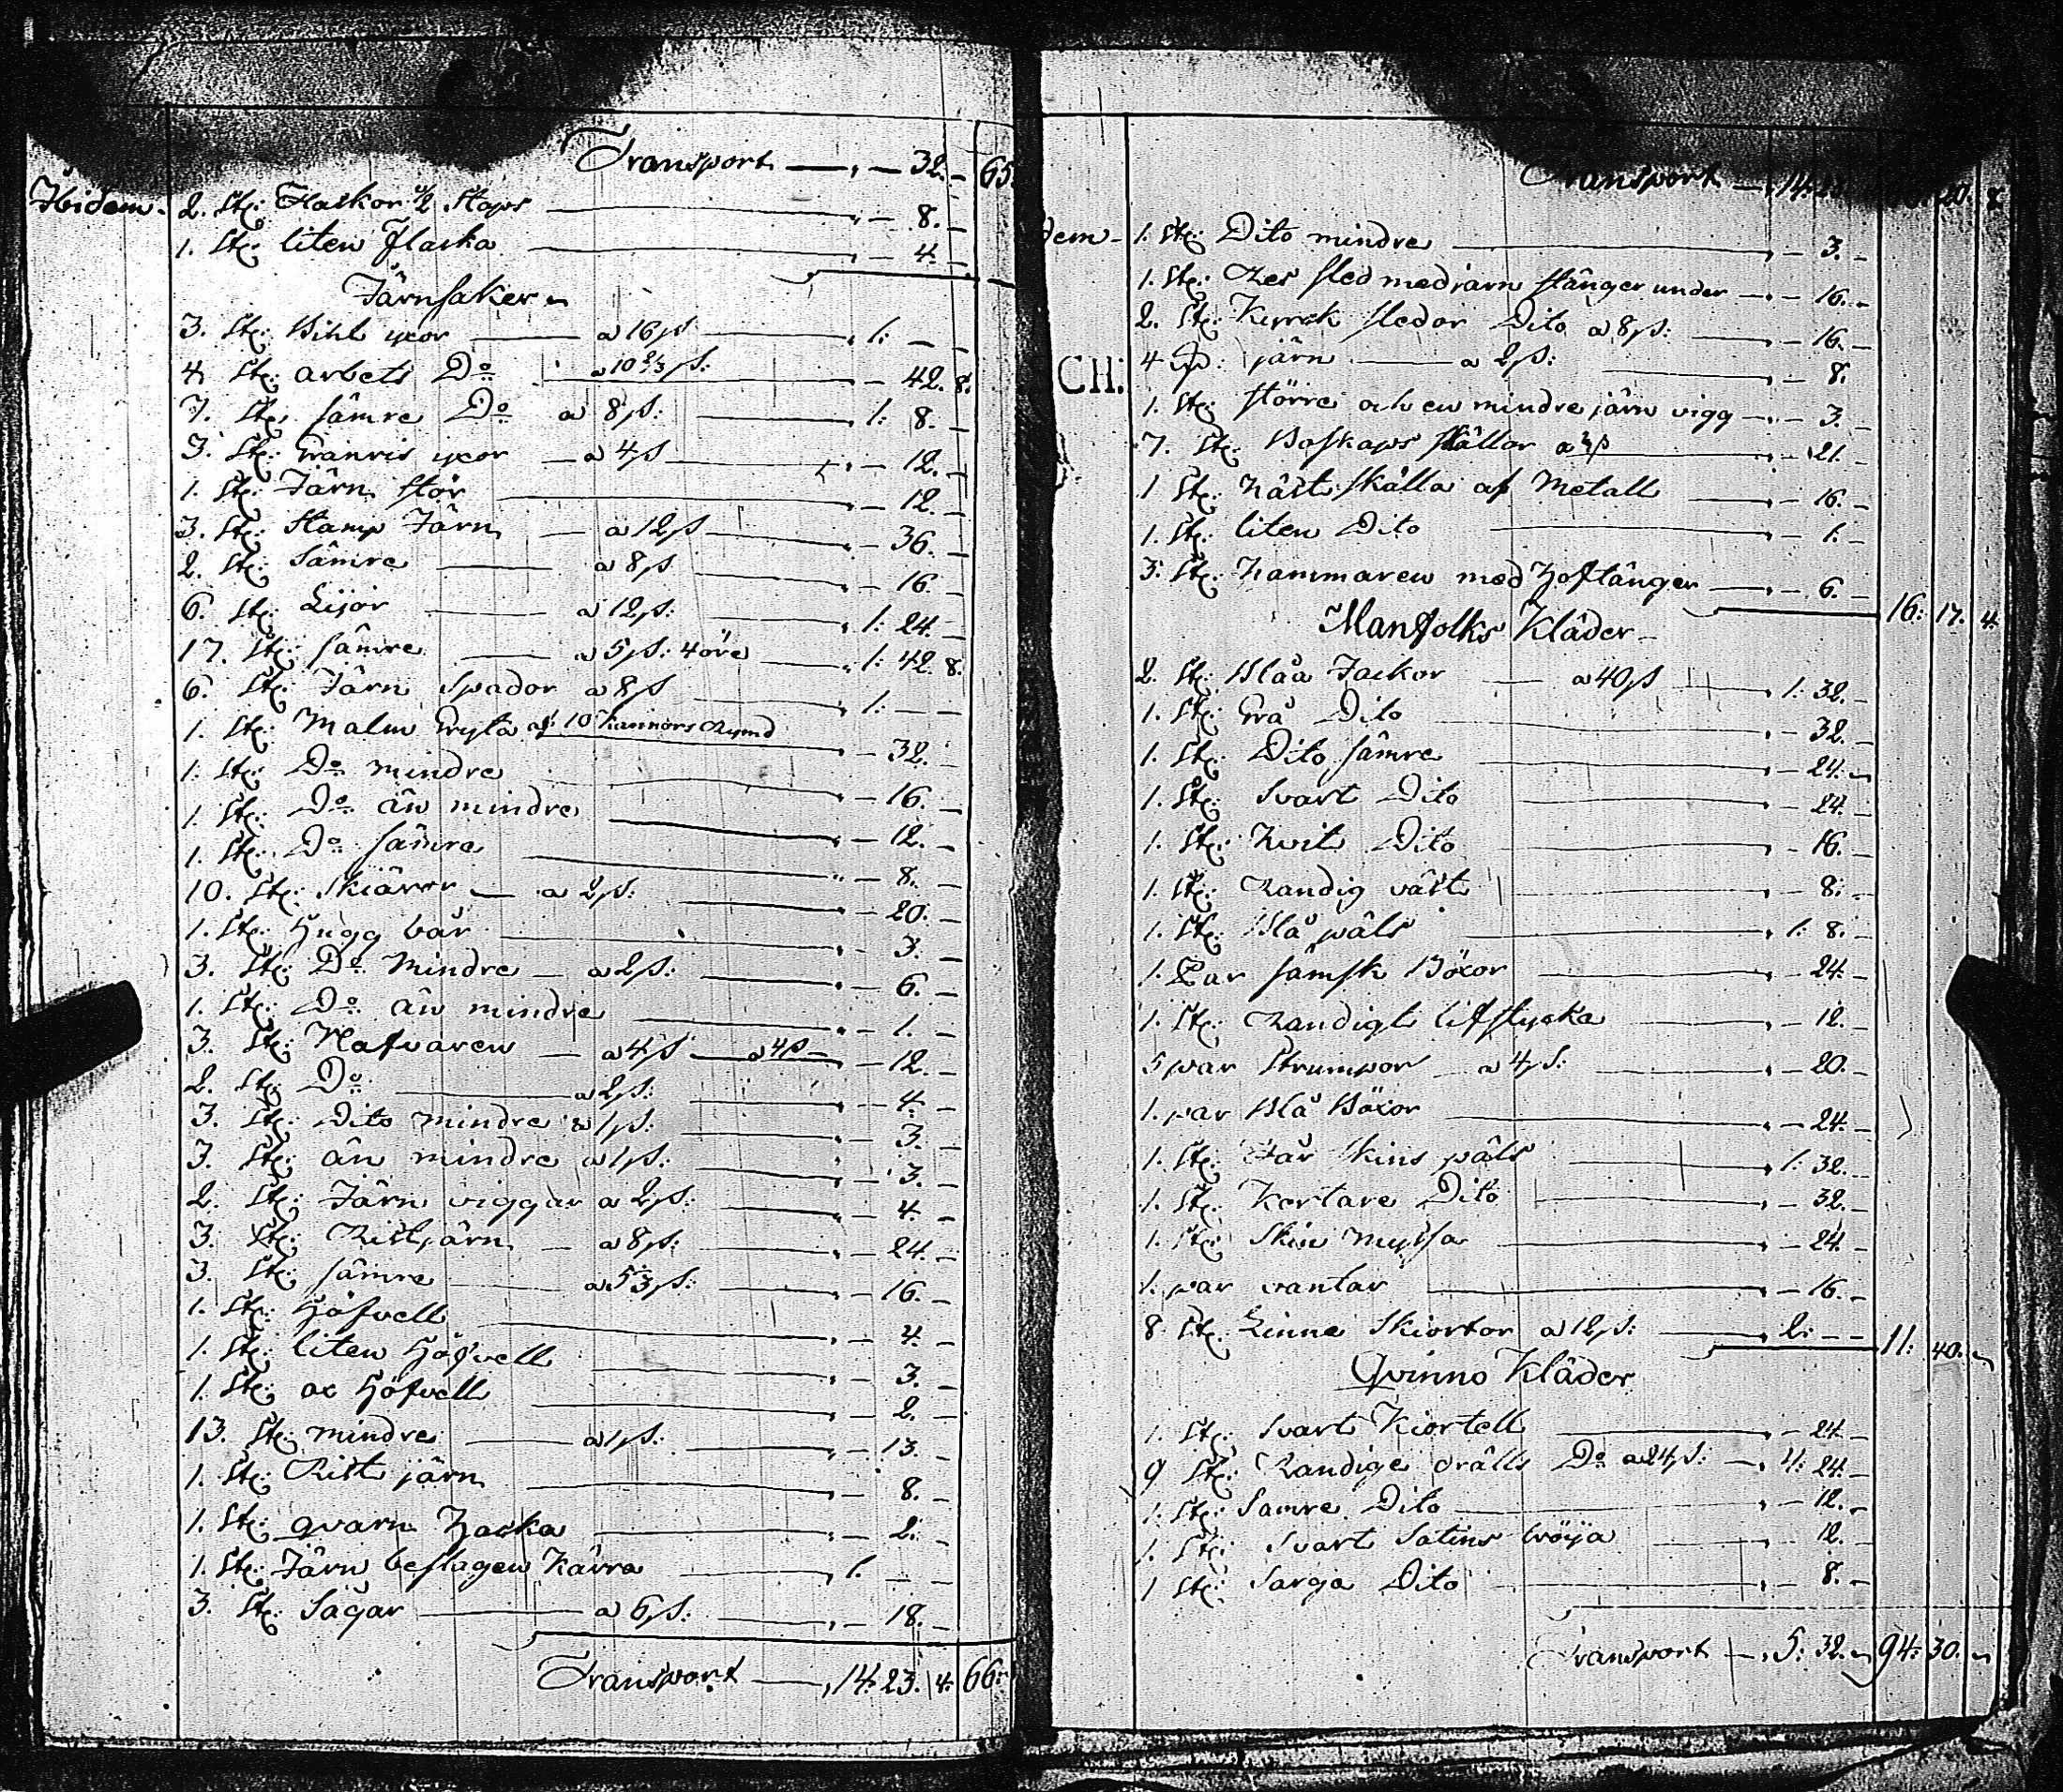 Transport — „ — 32. — 65.
Ibidem. 2. St: Flaskor ½ Stops „ — 8. —
1. St: liten flaska „ — 4. —
Järnsaker
3. St: Bihl yxor — a 16 ß „ 1: — —
4 St: arbets Do a 10 2/3 ß: „ — 42. 8.
7. St: sämre Do a 8 ß: 1: 8. —
3. St: Granris yxor — a 4 ß „ — 12. —
1. St: Järn stör „ — 12. —
3. St: Stamp Järn — a 12 ß „ — 36. —
2. St: Sämre — a 8 ß „ — 16. —
6. St: Lijor — a 12 ß: „ 1: 24. —
17. St: sämre — a 5 ß: 4 öre „ 1: 42. 8.
6. St: Järn Spador a 8 ß „ 1: — —
1. St: Malm Gryta af 10 Kannors Rymd „ — 32. —
1. St: Do mindre „ — 16. —
1. St: Do än mindre „ — 12. —
1. St: Do sämre „ — 8. —
10. St: Skiäror — a 2 ß: „ — 20. —
1. St: Hugg bår „ — 3. —
3. St: Do Mindre — a 2 ß: „ — 6. —
1. St: Do än mindre „ — 1. —
3. St: Nafvaren — a 4 ß — a 4 ß „ — 12. —
2. St: Do — a 2 ß: „ — 4. —
3. St: Dito mindre a 1 ß: „ — 3. —
3. St: än mindre a 1 ß: „ — 3. —
2. St: Järn viggar a 2 ß: „ — 4. —
3. St: Ristjärn — a 8 ß: „ — 24. —
3. St: sämre — a 5 1/3 ß: „ — 16. —
1. St: Höfvell „ — 4. —
1. St: liten Höfvell „ — 3. —
1. St: ax Höfvell „ — 2. —
13. St: mindre — a 1 ß: „ — 13. —
1. St: Rist järn „ — 8. —
1. St: qvarn Hacka „ — 2. —
1. St: Järn beslagen Kärra „ 1. — —
3. St: Sågar — a 6 ß: „ — 18. —
Transport — „ 14: 23. 4. 66:
Transport — „ 14: 20. 8.
dem — 1. St: Dito mindre „ — 3. —
1. St: Res sled med järn stänger under — „ — 16. —
2. St: Kyrck sledar Dito a 8 ß: „ — 16. —
4 ℔: järn — a 2 ß: „ — 8.
CH.
1. St: större och en mindre järn vigg — „ — 3. —
7. St: Boskaps skällor a 3 ß „ — 21. —
1 St: häst skälla af Metall „ — 16. —
1. St: liten Dito „ — 1. —
3. St: Hammaren med Hoftänger „ — 6. — 16: 17. 4.
Manfolks Kläder
2. St: Blåa Jackor — a 40 ß „ 1: 32. —
1. St: Grå Dito „ — 32. —
1. St: Dito sämre „ — 24. —
1. St: Svart Dito „ — 24. —
1. St: hvit Dito „ — 16. —
1. St: Randig väst „ — 8. —
1. St: Blå päls „ 1: 8. —
1. Par sämsk Böxor „ — 24. —
1. St: Randigt lifstycka „ — 12. —
5 par Strumpor a 4 ß: „ — 20. —
1. par Blå Böxor „ — 24. —
1. St: Får skins päls „ 1: 32. —
1. St: Kortare Dito „ — 32. —
1. St: Skin myssa „ — 24. —
1. par vantar „ — 16. —
8. St: Linne Skiortor a 12 ß: „ 2: — — 11: 40. —
Qvinno Kläder
1. St: Svart Kiortell „ — 24. —
9 St: Randige drälls Do a 24 ß: — „ 4: 24. —
1. St: Sämre Dito „ — 12. —
1. St: Svart Satins tröija „ — 12. —
1 St: Sarga Dito „ — 8. —
Transport — „ 5: 32. — 94: 30. —